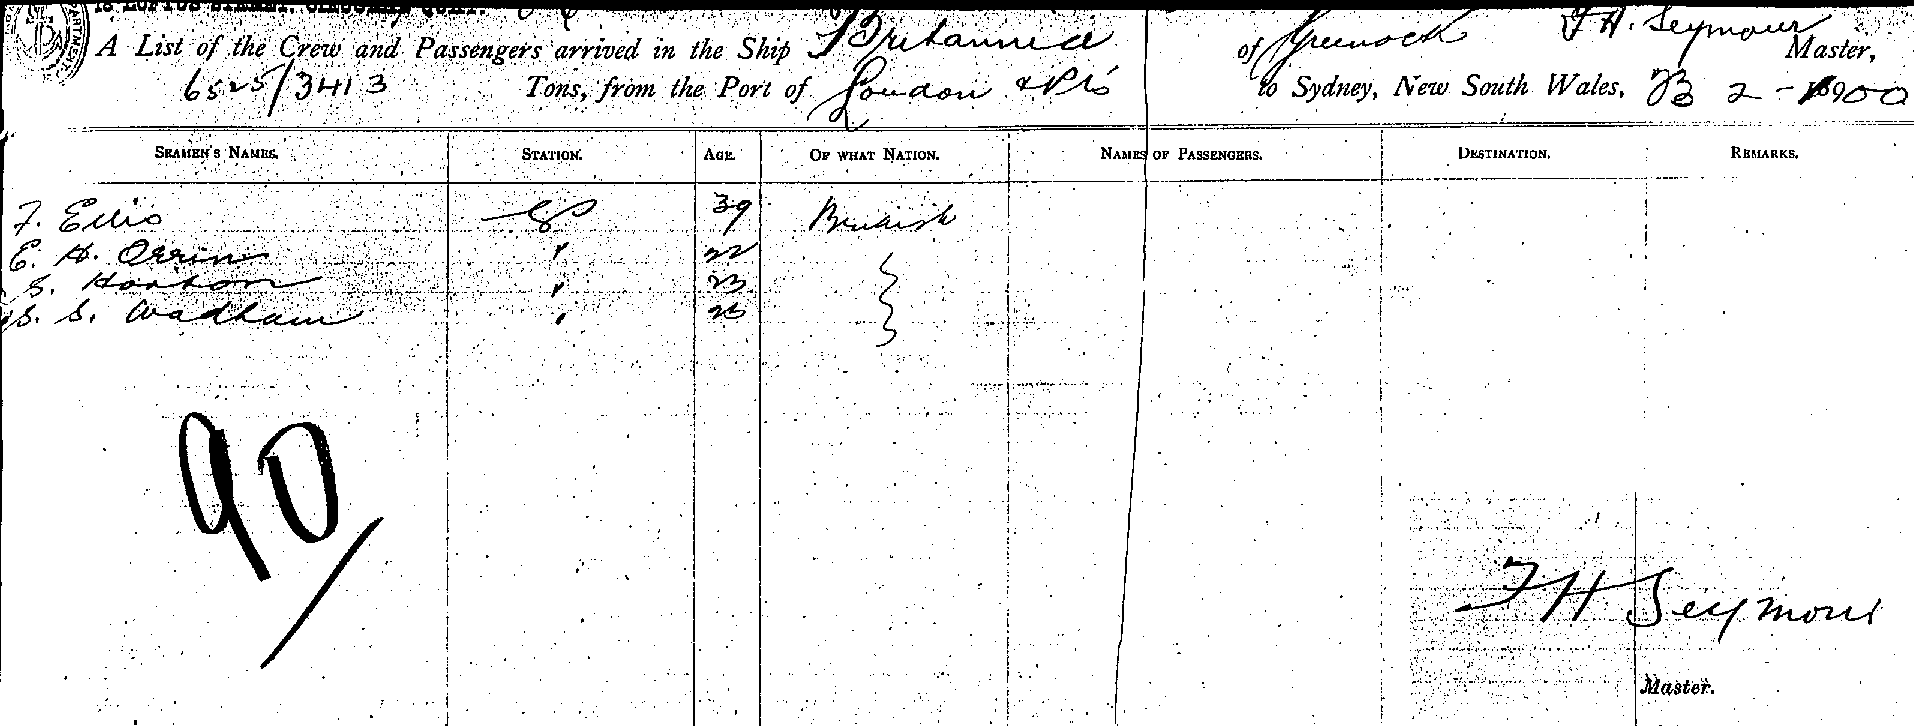 A List of the Crew and Passengers arrived in the Ship Britannia of Greenock F H. Seymour Master,
6525/3413 Tons, from the Port of London & Pts to Sydney, New South Wales, 23 2 - 1900
SEAMEN'S NAMES. STATION. AGE. OF WHAT NATION. NAMES OF PASSENGERS. DESTINATION. REMARKS.
F. Ellis 39 British
E. H. Orrin " 22
S. Horton " 23
S. Wadham "
90/
F H Seymour
Master.